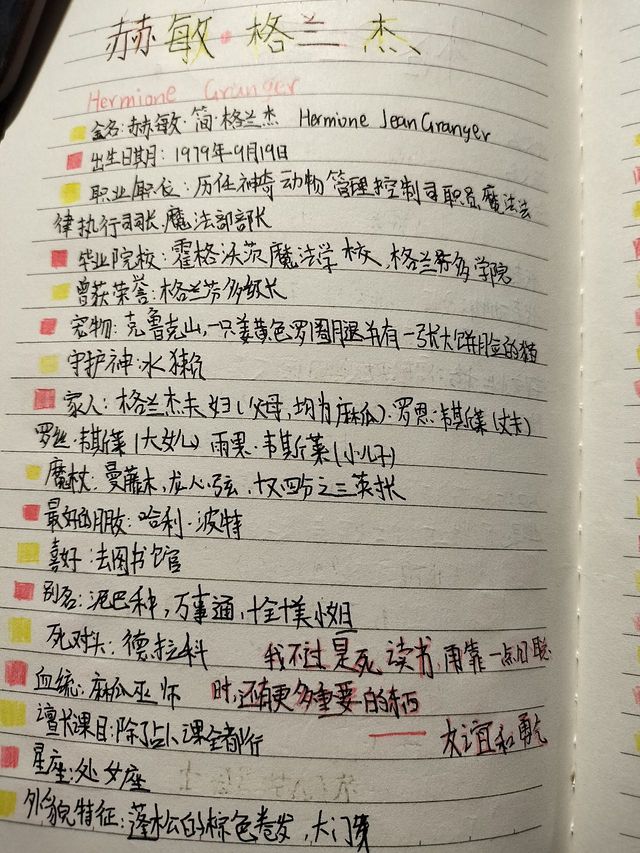 赫敏·格兰杰
Hermione Granger
全名:赫敏·简·格兰杰 Hermione Jean Granger
出生日期:1979年9月19日
职业/职位:历任神奇动物管理控制司职员魔法法
律执行司司长,魔法部部长
毕业院校:霍格沃茨魔法学校,格兰芬多学院
曾获荣誉:格兰芬多级长
宠物:克鲁克山,一只姜黄色罗圈腿并有一张大饼脸的猫
守护神:水獭
家人:格兰杰夫妇(父母,均为麻瓜)·罗恩·韦斯莱(丈夫)
罗丝·韦斯莱(大女儿)雨果·韦斯莱(小儿子)
魔杖:葡藤木,龙心弦,十又四分之三英寸长
最好的朋友:哈利·波特
喜好:去图书馆
别名:泥巴种,万事通,十全十美小姐
死对头:德拉科 我不过是死读书,再靠一点小聪
血统:麻瓜巫师 时,还有更多重要的东西
擅长课目:除了占卜课全都行 ——友谊和勇气
星座:处女座
外貌特征:蓬松的棕色卷发,大门牙